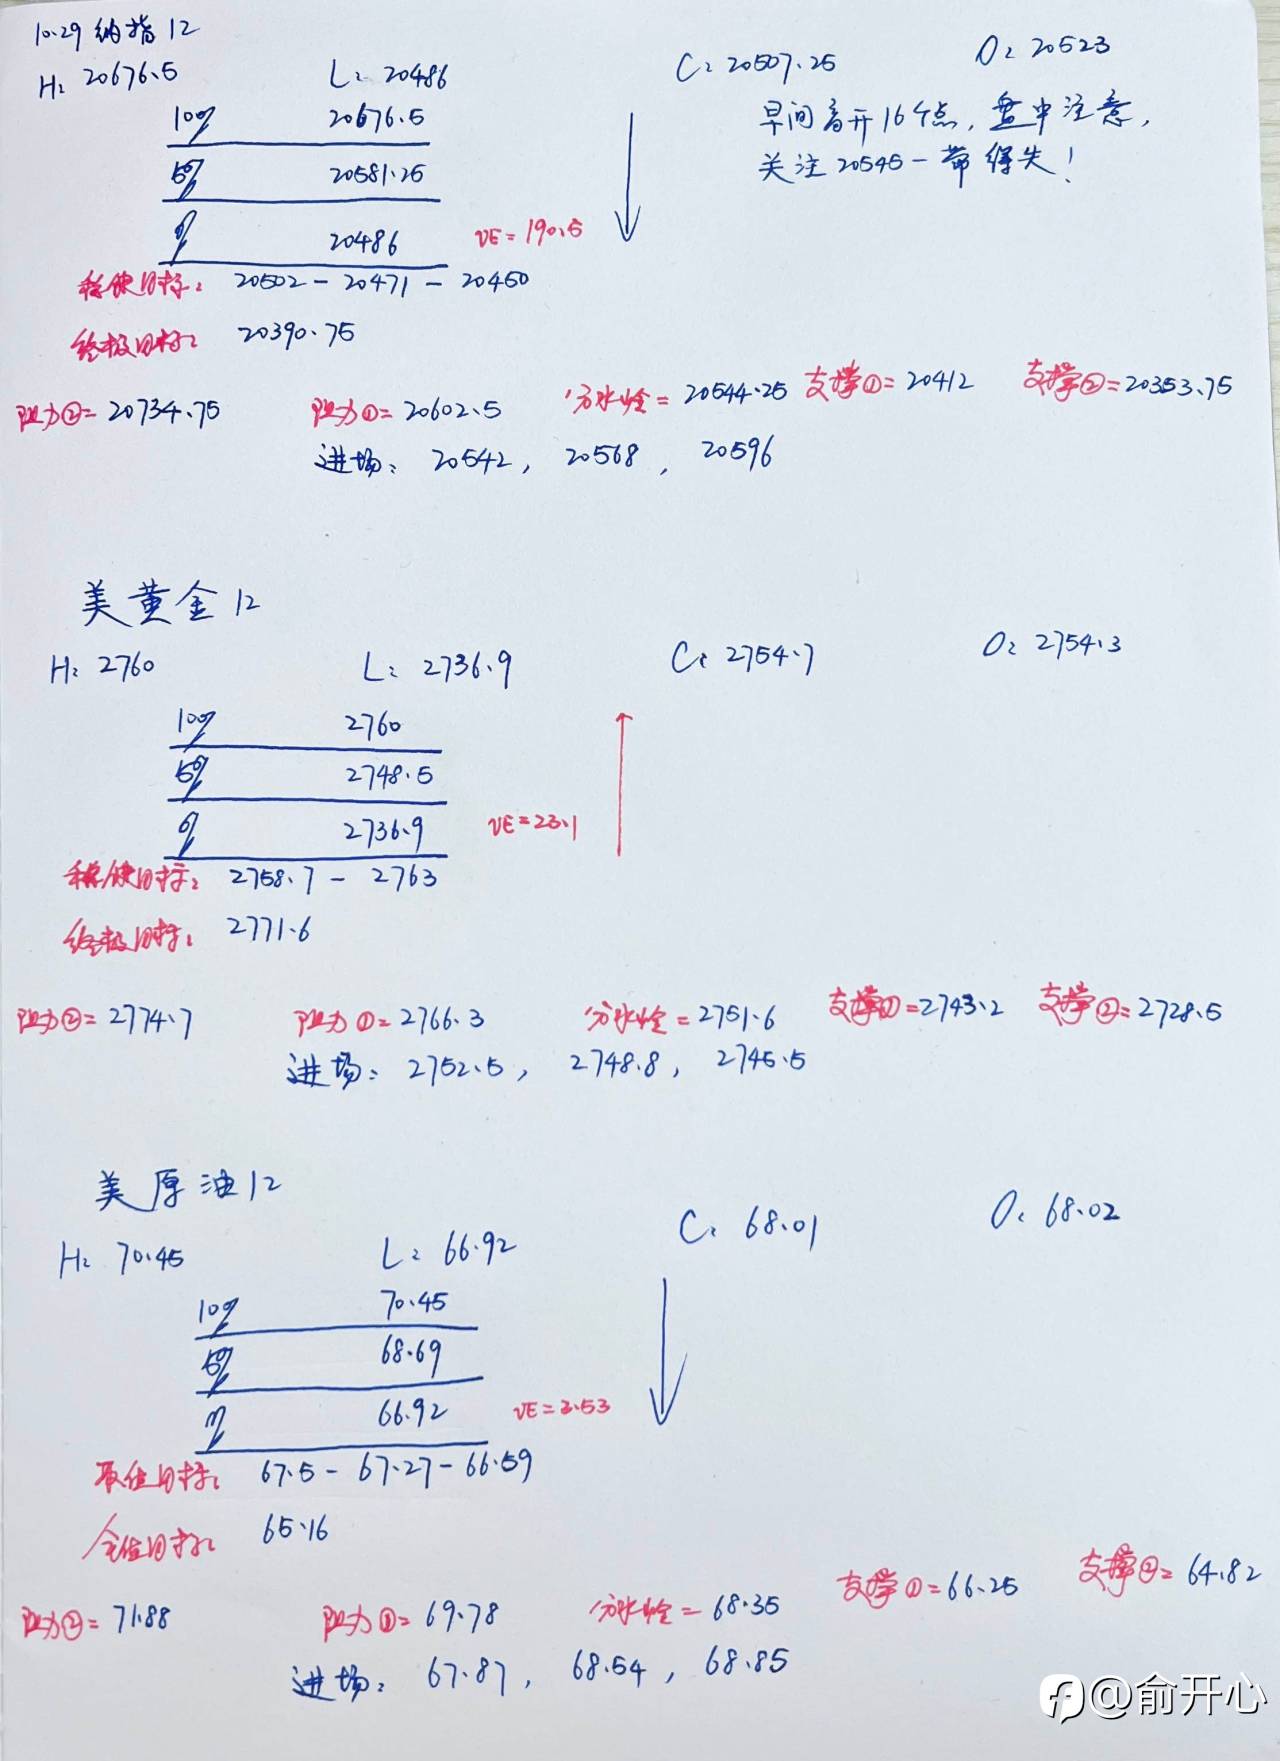 10.29 纳指12
H: 20676.5 L: 20486 C: 20507.25 O: 20523
早间高开16个点，盘中注意，
关注20545一带得失！
100% 20676.5
50% 20581.25
0% 20486 VE=190.5
稳健目标： 20502－20471－20450
终极目标： 20390.75
阻力②=20734.75 阻力①=20602.5 分水岭=20544.25 支撑①=20412 支撑②=20353.75
进场：20542，20568，20596
美黄金12
H: 2760 L: 2736.9 C: 2754.7 O: 2754.3
100% 2760
50% 2748.5
0% 2736.9 VE=23.1
稳健目标：2758.7－2763
终极目标：2771.6
阻力②=2774.7 阻力①=2766.3 分水岭=2751.6 支撑①=2743.2 支撑②=2728.5
进场：2752.5，2748.8，2745.5
美原油12
H: 70.45 L: 66.92 C: 68.01 O: 68.02
100% 70.45
50% 68.69
0% 66.92 VE=3.53
目标：67.5－67.27－66.59
目标：65.16
阻力②=71.88 阻力①=69.78 分水岭=68.35 支撑①=66.25 支撑②=64.82
进场：67.87，68.54，68.85
@俞开心